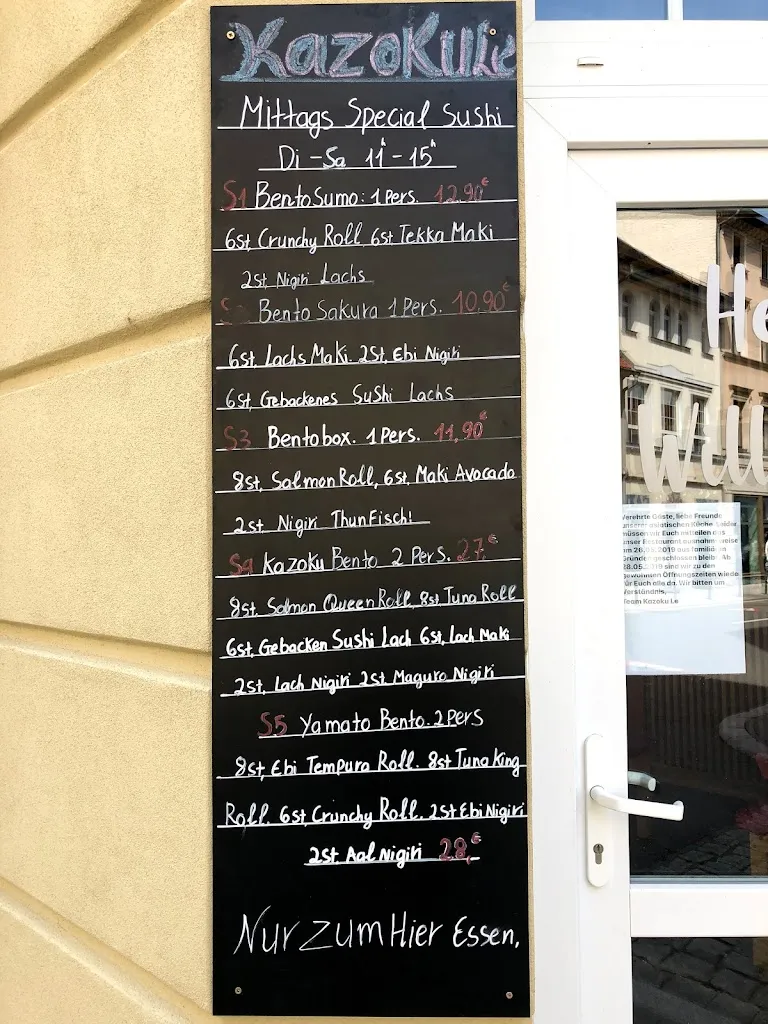 Kazoku Le
Mittags Special Sushi
Di - Sa 11h - 15h
S1 Bento Sumo: 1 Pers. 12,90€
6st, Crunchy Roll, 6st Tekka Maki
2st, Nigiri Lachs
Bento Sakura 1 Pers. 10,90€
6st, Lachs Maki. 2St, Ebi Nigiri
6st, Gebackenes Sushi Lachs
S3 Bentobox. 1 Pers. 11,90€
8st, Salmon Roll, 6st, Maki Avocado
2st Nigiri ThunFisch!
S4 Kazoku Bento 2 Pers. 27,€
8st, Salmon Queen Roll, 8st, Tuna Roll
6st, Gebacken Sushi Lach 6st, Lach Maki
2st, Lach Nigiri 2st Maguro Nigiri
S5 Yamato Bento. 2 Pers
8st, Ebi Tempura Roll. 8st Tuna King
Roll. 6st, Crunchy Roll, 2st Ebi Nigiri
2st. Aal Nigiri 28,€
Nur zum Hier Essen.
He
Will
Verehrte Gäste, liebe Freunde
unserer asiatischen Küche. Leider
müssen wir Euch mitteilen das
unser Restaurant ausnahmsweise
am 26.05.2019 aus familiären
Gründen geschlossen bleibt. Ab
28.05.2019 sind wir zu den
gewohnten Öffnungszeiten wieder
für Euch alle da. Wir bitten um
Verständnis,
Team Kazoku Le